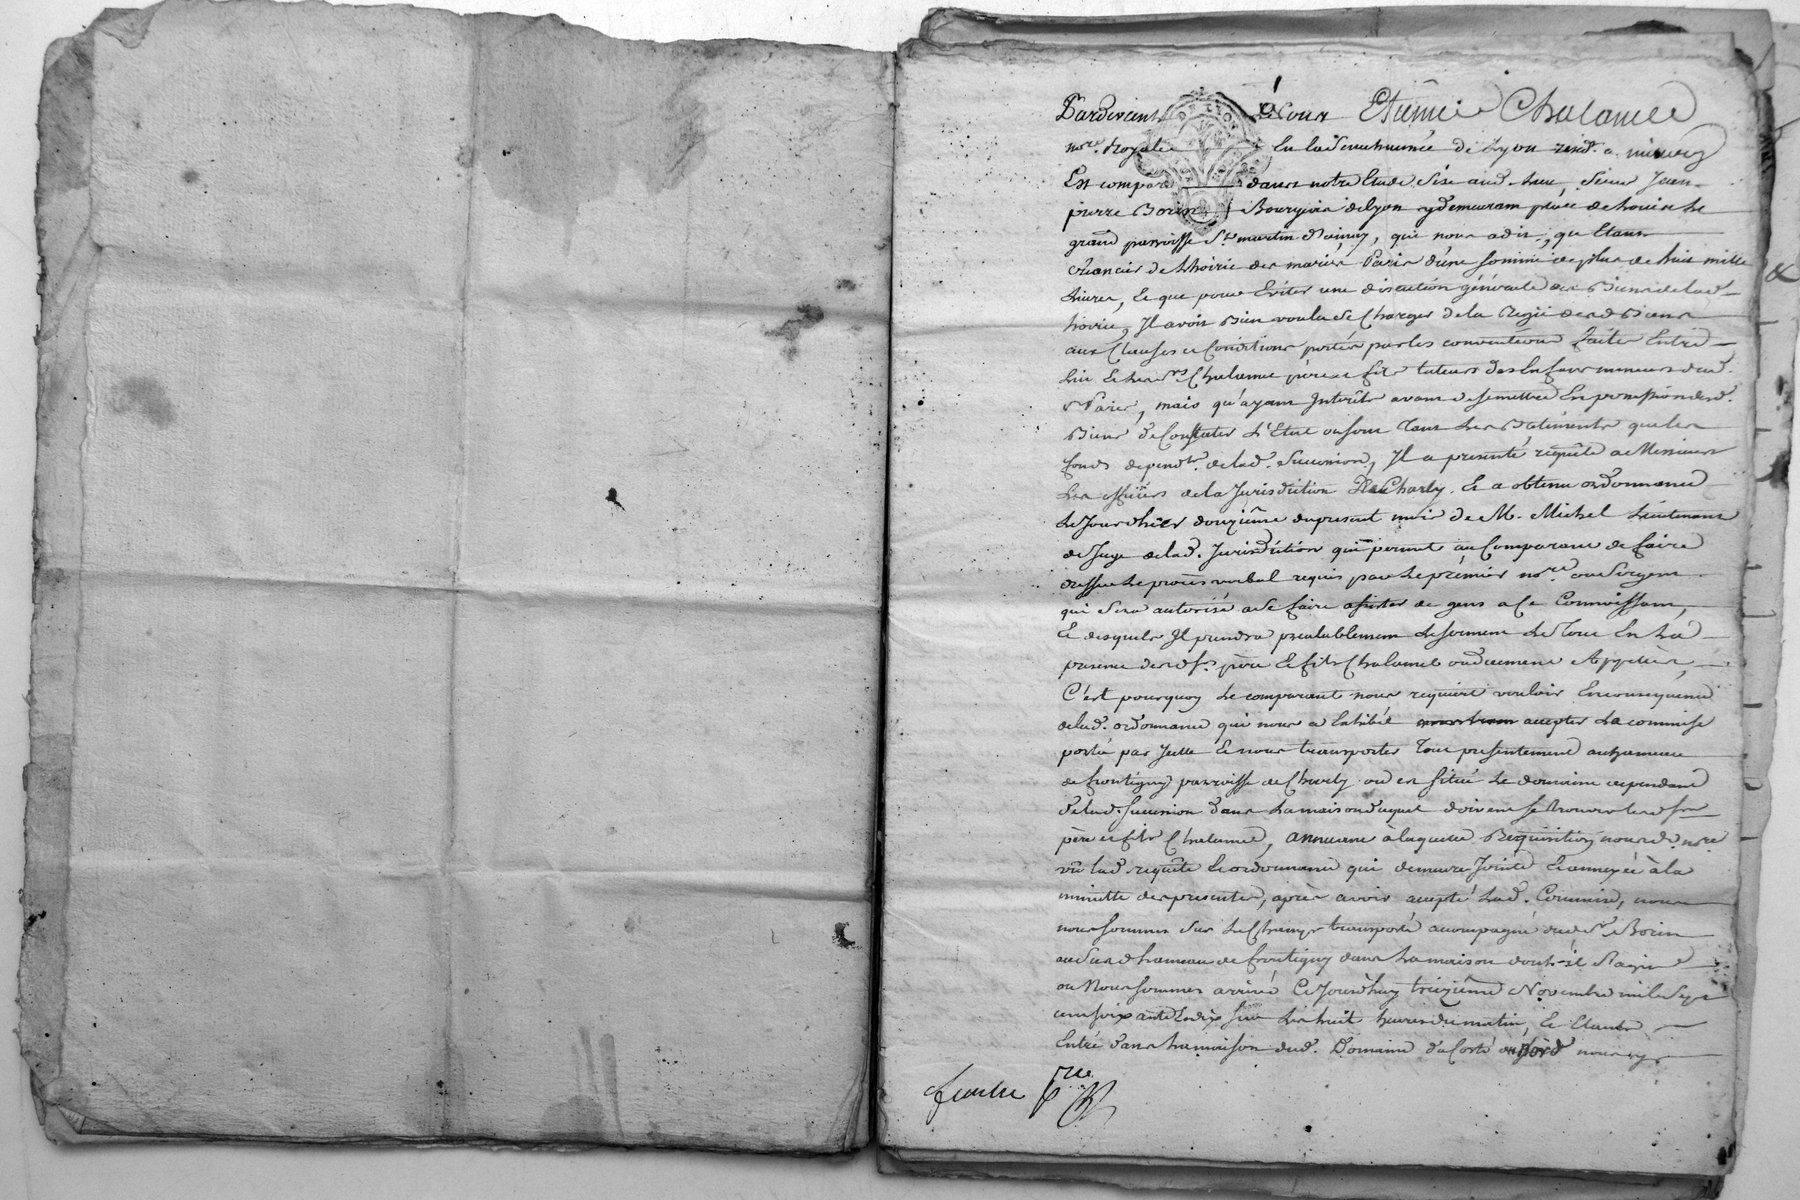 Pardevant Nous Etienne Chalamel
nore. Royal En la Senechaussée de Lyon resid. a millery
Est comparu dans notre Etude size aud. Lieu, sieur Jean
pierre Borin Bourgeois de Lyon y demeurant place de Louis Le
grand parroisse St martin D'ainay, qui nous a dit, qu'Etant
créancier de L'hoirie des mariés Paris d'une somme de plus de huit mille
Livres, Et que pour Eviter une discution générale des Biens de lad.
hoirie, Il avoit Bien voulu se Charger de la Regie desd. Biens
aux Clauses et Conditions portées par les conventions faites Entre
Lui Et Les Srs Chalamel père et fils tuteurs des Enfans mineurs dud.
Sr Paris, mais qu'ayant Interêts avant de se mettre En possession desd.
Biens de Constater L'Etat ou sont Tant Les Batiments que les
fonds dependts. de lad. Succession, Il a presenté requête a Messieurs
Les officiers de la Jurisdiction De Charly, Et a obtenu ordonnance
Le Jour d'hier douzième du present mois de M. Michel Lieutenant
de Juge de lad. Jurisdiction qui permet au Comparant de faire
dresser Le procès verbal requis par Le prémier nore. ou Sergent
qui sera autorisé a se faire assister de gens a Ce Connoissant,
Et desquels Il prendra préalablement Le serment Le Tout En La
presence desd. Srs. père Et fils Chalamel ou duement Appellés,
C'est pourquoy Le comparant nous requiert vouloir En consequence
de lad. ordonnance qui nous a Exhibée accepter La commise
portée par Icelle Et nous transporter Tout presentement au hameau
de frontigny parroisse de Charly ou est situé Le domaine dependant
de lad. Succession dans La maison duquel doivent se trouver Lesd. Srs
père et fils Chalamel, à laquelle Requisition nousd. nore
vû lad. requête Et ordonnance qui demeure Jointe Et annexée à la
minutte des presentes, après avoir accepté Lad. Commise, nous
nous sommes sur Le Champ transporté accompagné dud. Sr Borin
au Susd. hameau de frontigny dans La maison dont il s'agit
ou Nous sommes arrivé Ce Jourd'huy treizième Novembre mil Sept
cent soixante Et dix sur Les huit heures du matin, Et Etant
Entré dans La maison dud. Domaine du Coté du Nord nous y
feuille 1re